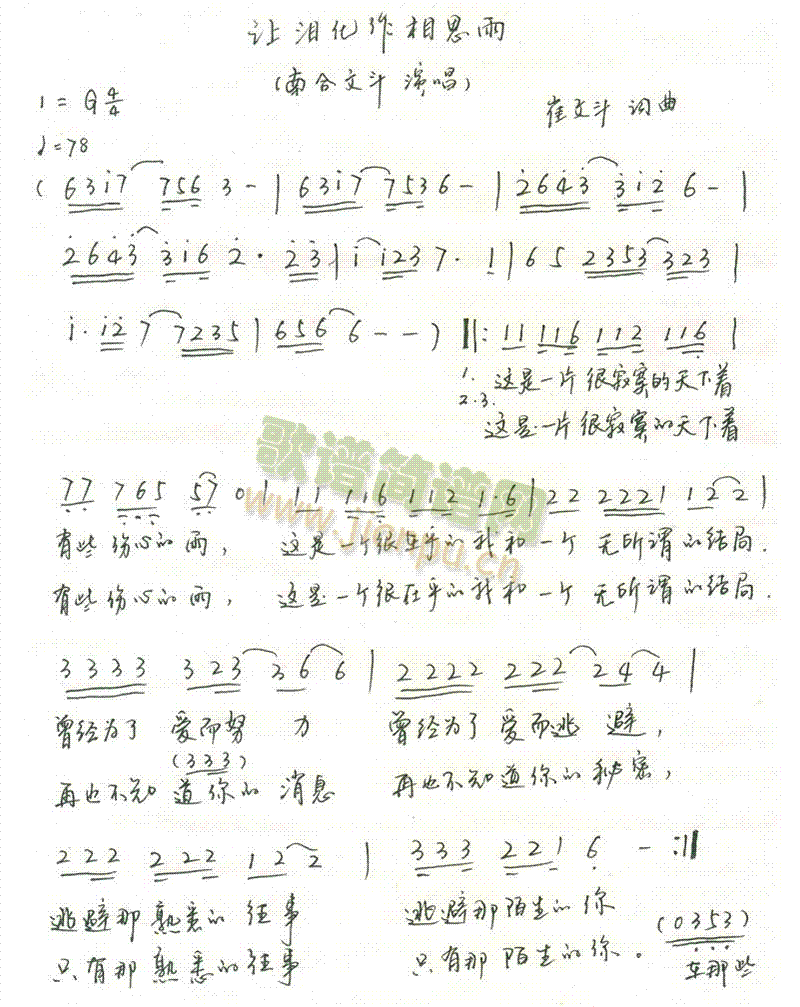 让泪化作相思雨
(南合文斗 演唱)
1=G4/4
崔文斗 词曲
♩=78
(6317 7563-|6317 7536-|2643 3126-|
2643 3162·23|1 1237·1|65 2353 323|
1·127 7235|6566--)‖:11 116 112 116|
1. 这是一片很寂寞的天下着
2.3. 这是一片很寂寞的天下着
77 765 570|11 116 112 1·6|22 2221 122|
有些伤心的雨, 这是一个很在乎的我和一个 无所谓的结局.
有些伤心的雨, 这是一个很在乎的我和一个 无所谓的结局.
3333 323 366|2222 222 244|
曾经为了 爱而努 力 曾经为了 爱而逃 避,
(333)
再也不知 道你的 消息 再也不知道你的 秘密,
222 222 122 | 333 221 6 - :‖
逃避那熟悉的往事 逃避那陌生的你
(0353)
只有那熟悉的往事 只有那陌生的你。 在那些
歌谱简谱网
www.jianpu.cn